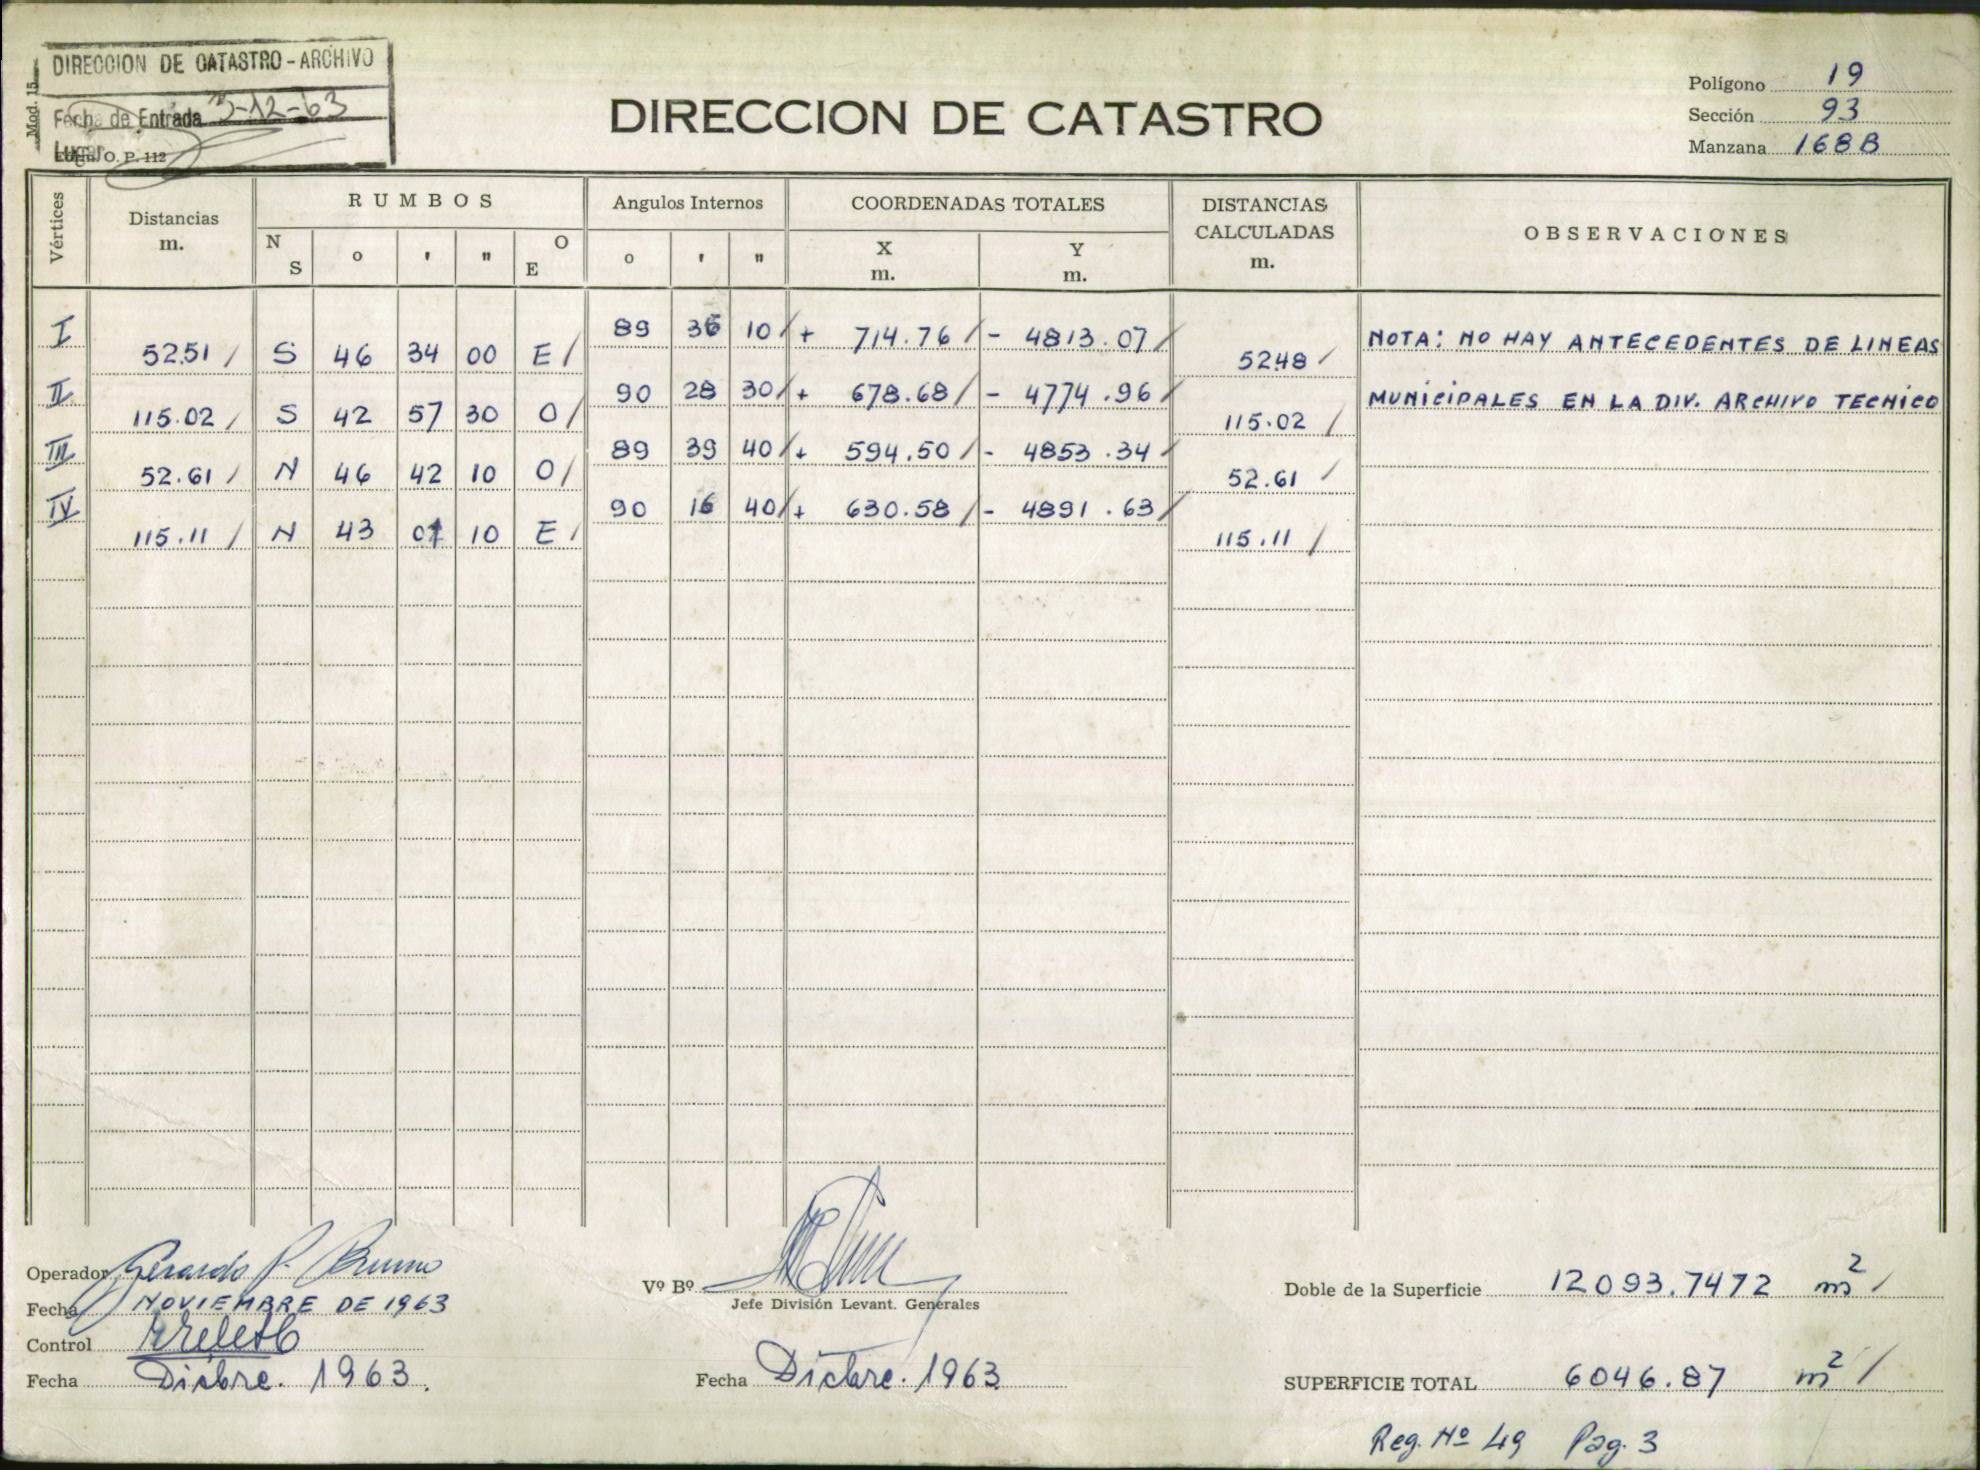 DIRECCION DE CATASTRO - ARCHIVO
Mod. 15
Fecha de Entrada 3-12-63
Lugar
O. P. 112
DIRECCION DE CATASTRO
Polígono 19
Sección 93
Manzana 168B
Vértices
Distancias m.
RUMBOS
N S ° ' " O E
Angulos Internos
° ' "
COORDENADAS TOTALES
X m. Y m.
DISTANCIAS CALCULADAS m.
OBSERVACIONES
I 89 36 10 / + 714.76 / - 4813.07 / NOTA: NO HAY ANTECEDENTES DE LINEAS
52.51 / S 46 34 00 E / 52.48 /
II 90 28 30 / + 678.68 / - 4774.96 / MUNICIPALES EN LA DIV. ARCHIVO TECNICO
115.02 / S 42 57 30 O / 115.02 /
III 89 39 40 / + 594.50 / - 4853.34 /
52.61 / N 46 42 10 O / 52.61 /
IV 90 16 40 / + 630.58 / - 4891.63 /
115.11 / N 43 01 10 E / 115.11 /
Operador Gerardo P. Bruno
Fecha NOVIEMBRE DE 1963
Control
Fecha Dicbre. 1963.
Vº Bº
Jefe División Levant. Generales
Fecha Dicbre. 1963
Doble de la Superficie 12093.7472 m2 /
SUPERFICIE TOTAL 6046.87 m2 /
Reg. Nº 49 Pag. 3